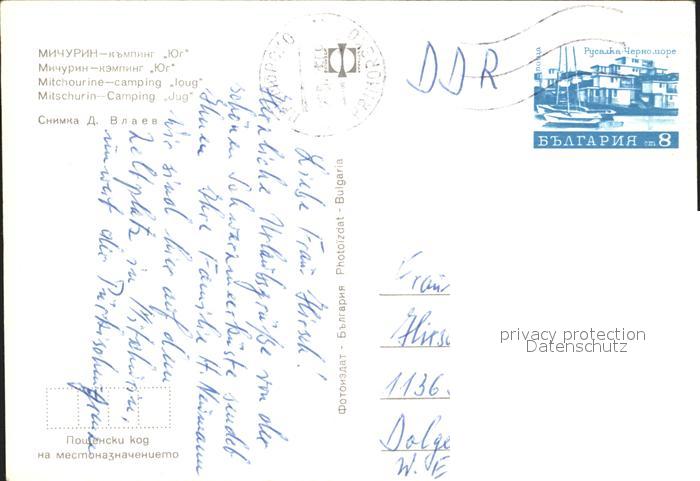 МИЧУРИН—къмпинг „Юг"
Мичурин—кэмпинг „Юг"
Mitchourine—camping „Ioug"
Mitschurin—Camping „Jug"
Снимка Д. Влаев
DDR
поща
Русалка-Черно море
БЪЛГАРИЯ ст 8
Liebe Frau Hirsch!
Herzliche Urlaubsgrüße von der
schönen Schwarzmeerküste sendet
Ihnen Ihre Familie H. Neumann
Wir sind hier auf dem
Zeltplatz in Mitschurin,
unweit der Türkischen Grenze
Фотоиздат - България Photoizdat - Bulgaria
Frau
Hirsc
1136
Dolge
W. E
privacy protection
Datenschutz
Пощенски код
на местоназначението